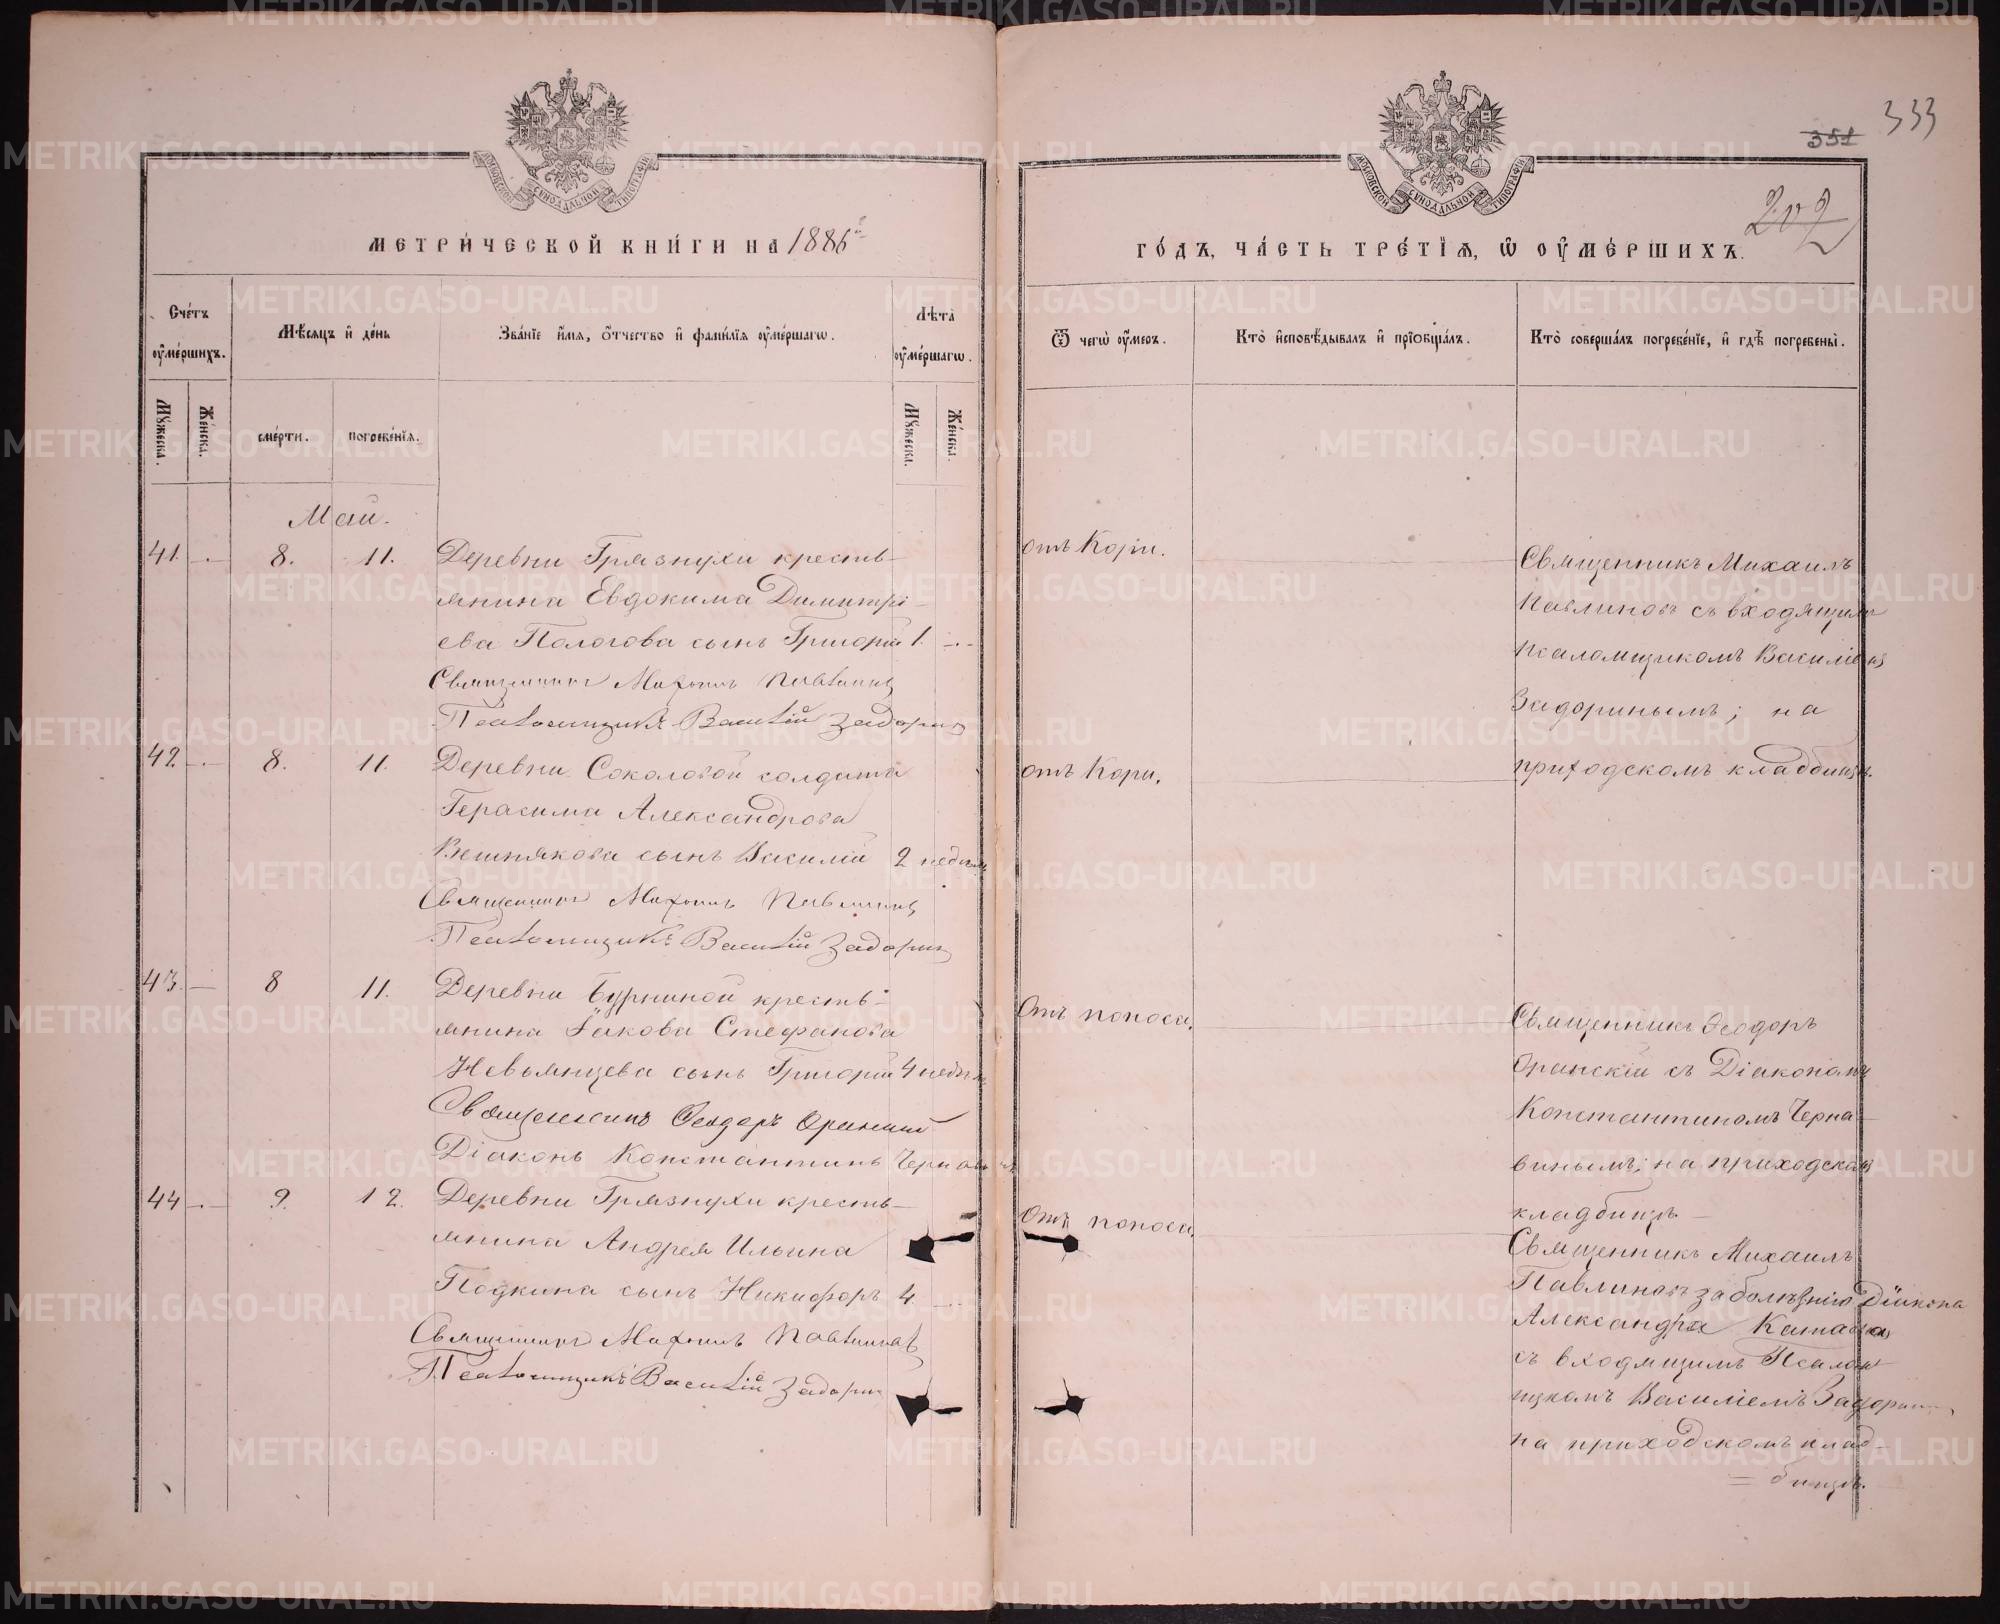 МЕТРИЧЕСКОЙ КНИГИ НА 1886й
Счетъ оумершихъ.
Мѣсяцъ и день
Званіе имя, отчество и фамилія оумершагѡ.
Лѣта оумершагѡ.
Мужеска.
Женска.
смерти.
погребенія.
Мужеска.
Женска.
Май.
41. 8. 11. Деревни Грязнухи кресть-
янина Евдокима Димитрі-
ева Пологова сынъ Григорій 1.
Священникъ Михаилъ Павлиновъ
Псаломщикъ Василій Задоринъ
42. 8. 11. Деревни Соколовой солдата
Герасима Александрова
Вешнякова сынъ Василій 2 недѣли
Священникъ Михаилъ Павлиновъ
Псаломщикъ Василій Задоринъ
43. 8 11. Деревни Бурниной кресть-
янина Іакова Стефанова
Невьянцева сынъ Григорій 4 недѣли
Священникъ Ѳеодоръ Оранскій
Діаконъ Константинъ Чернавинъ
44 9. 12. Деревни Грязнухи кресть-
янина Андрея Ильина
сынъ Никифоръ 4.
Священникъ Михаилъ Павлиновъ
Псаломщикъ Василій Задоринъ
351 333
202
ГОДЪ, ЧАСТЬ ТРЕТІЯ, Ѡ ОУМЕРШИХЪ.
Ѿ чегѡ оумеръ.
Кто исповѣдывалъ и пріобщалъ.
Кто совершалъ погребеніе, и гдѣ погребены.
отъ Кори.
Священникъ Михаилъ
Павлиновъ съ входящимъ
псаломщикомъ Василіемъ
Задоринымъ; на
приходскомъ кладбищѣ.
отъ Кори.
Отъ поноса.
Священникъ Ѳеодоръ
Оранскій съ Діакономъ
Константиномъ Черна-
винымъ; на приходскомъ
кладбищѣ
Отъ поноса.
Священникъ Михаилъ
Павлиновъ за болѣзнію Діакона
Александра
съ входящимъ Псалом-
щикомъ Василіемъ Задоринымъ
на приходскомъ клад-
= бищѣ.